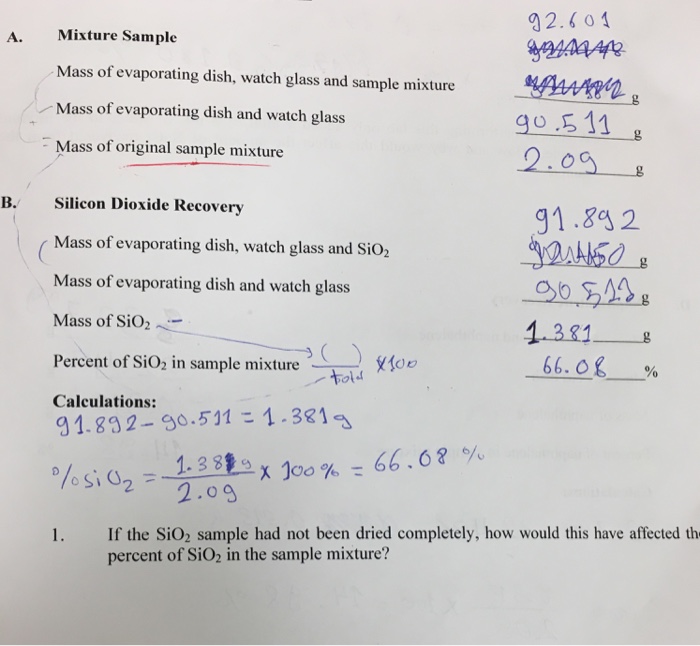 92.601
A. Mixture Sample
Mass of evaporating dish, watch glass and sample mixture g
Mass of evaporating dish and watch glass 90.511 g
Mass of original sample mixture 2.09 g
B. Silicon Dioxide Recovery
91.892
Mass of evaporating dish, watch glass and SiO₂ g
Mass of evaporating dish and watch glass g
Mass of SiO₂ 1.381 g
Percent of SiO₂ in sample mixture ( ) / total x100 66.08 %
Calculations:
91.892-90.511 = 1.381g
%SiO₂ = 1.381g / 2.09 x 100% = 66.08 %
1. If the SiO₂ sample had not been dried completely, how would this have affected th
percent of SiO₂ in the sample mixture?